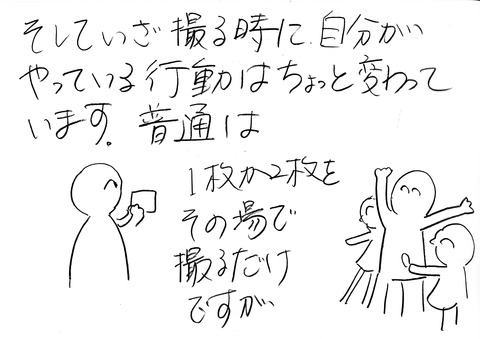 そしていざ撮る時に、自分が
やっている行動はちょっと変わって
います。普通は
1枚か2枚を
その場で
撮るだけ
ですが